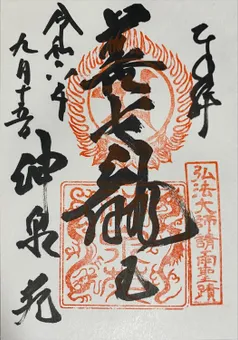 弘法大師請雨聖蹟
善女龍王
令和六年
九月十五日
神泉苑